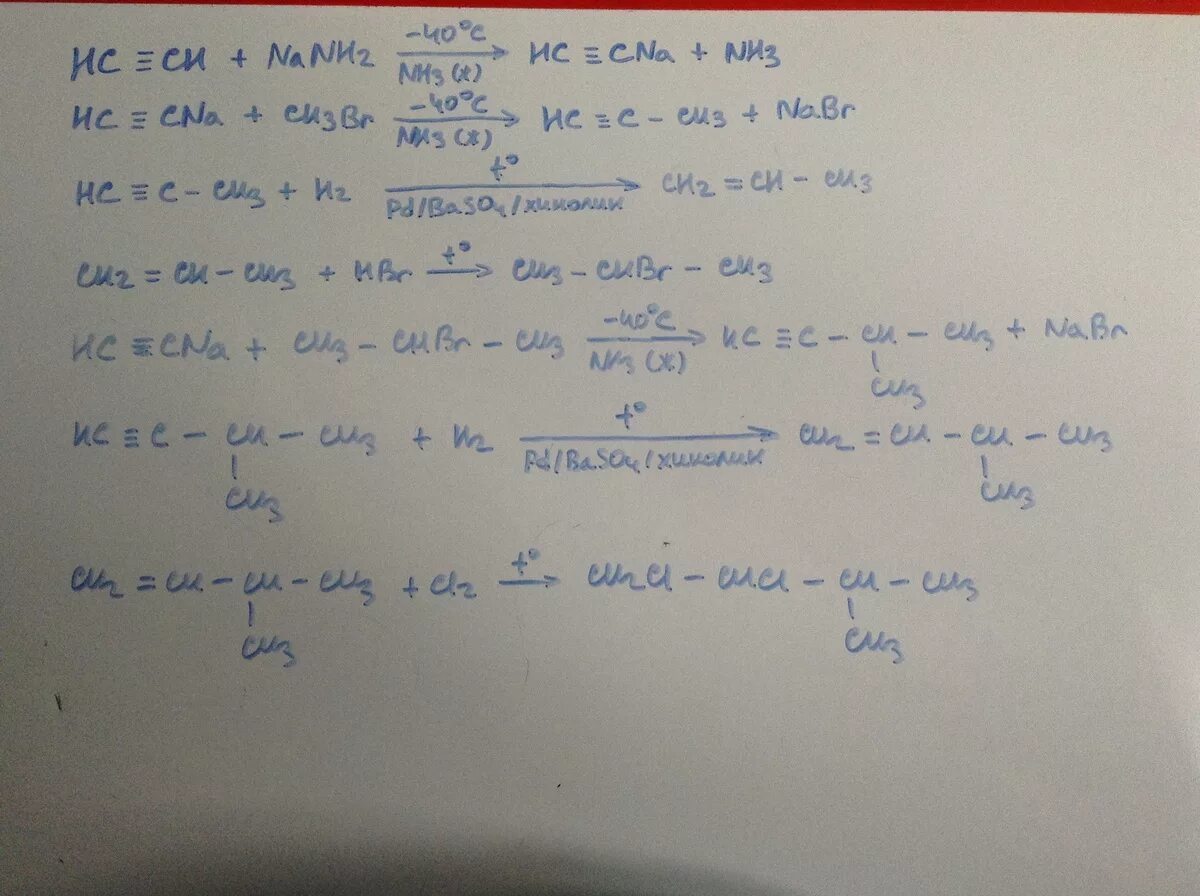 HC ≡ CH + NaNH2 –40°C NH3 (ж) → HC ≡ CNa + NH3
HC ≡ CNa + CH3Br –40°C NH3 (ж) → HC ≡ C – CH3 + NaBr
HC ≡ C – CH3 + H2 t° Pd/BaSO4/хинолин → CH2 = CH – CH3
CH2 = CH – CH3 + HBr t° → CH3 – CHBr – CH3
HC ≡ CNa + CH3 – CHBr – CH3 –40°C NH3 (ж) → HC ≡ C – CH – CH3 + NaBr
CH3
HC ≡ C – CH – CH3 + H2 t° Pd/BaSO4/хинолин → CH2 = CH – CH – CH3
CH3 CH3
CH2 = CH – CH – CH3 + Cl2 t° → CH2Cl – CHCl – CH – CH3
CH3 CH3